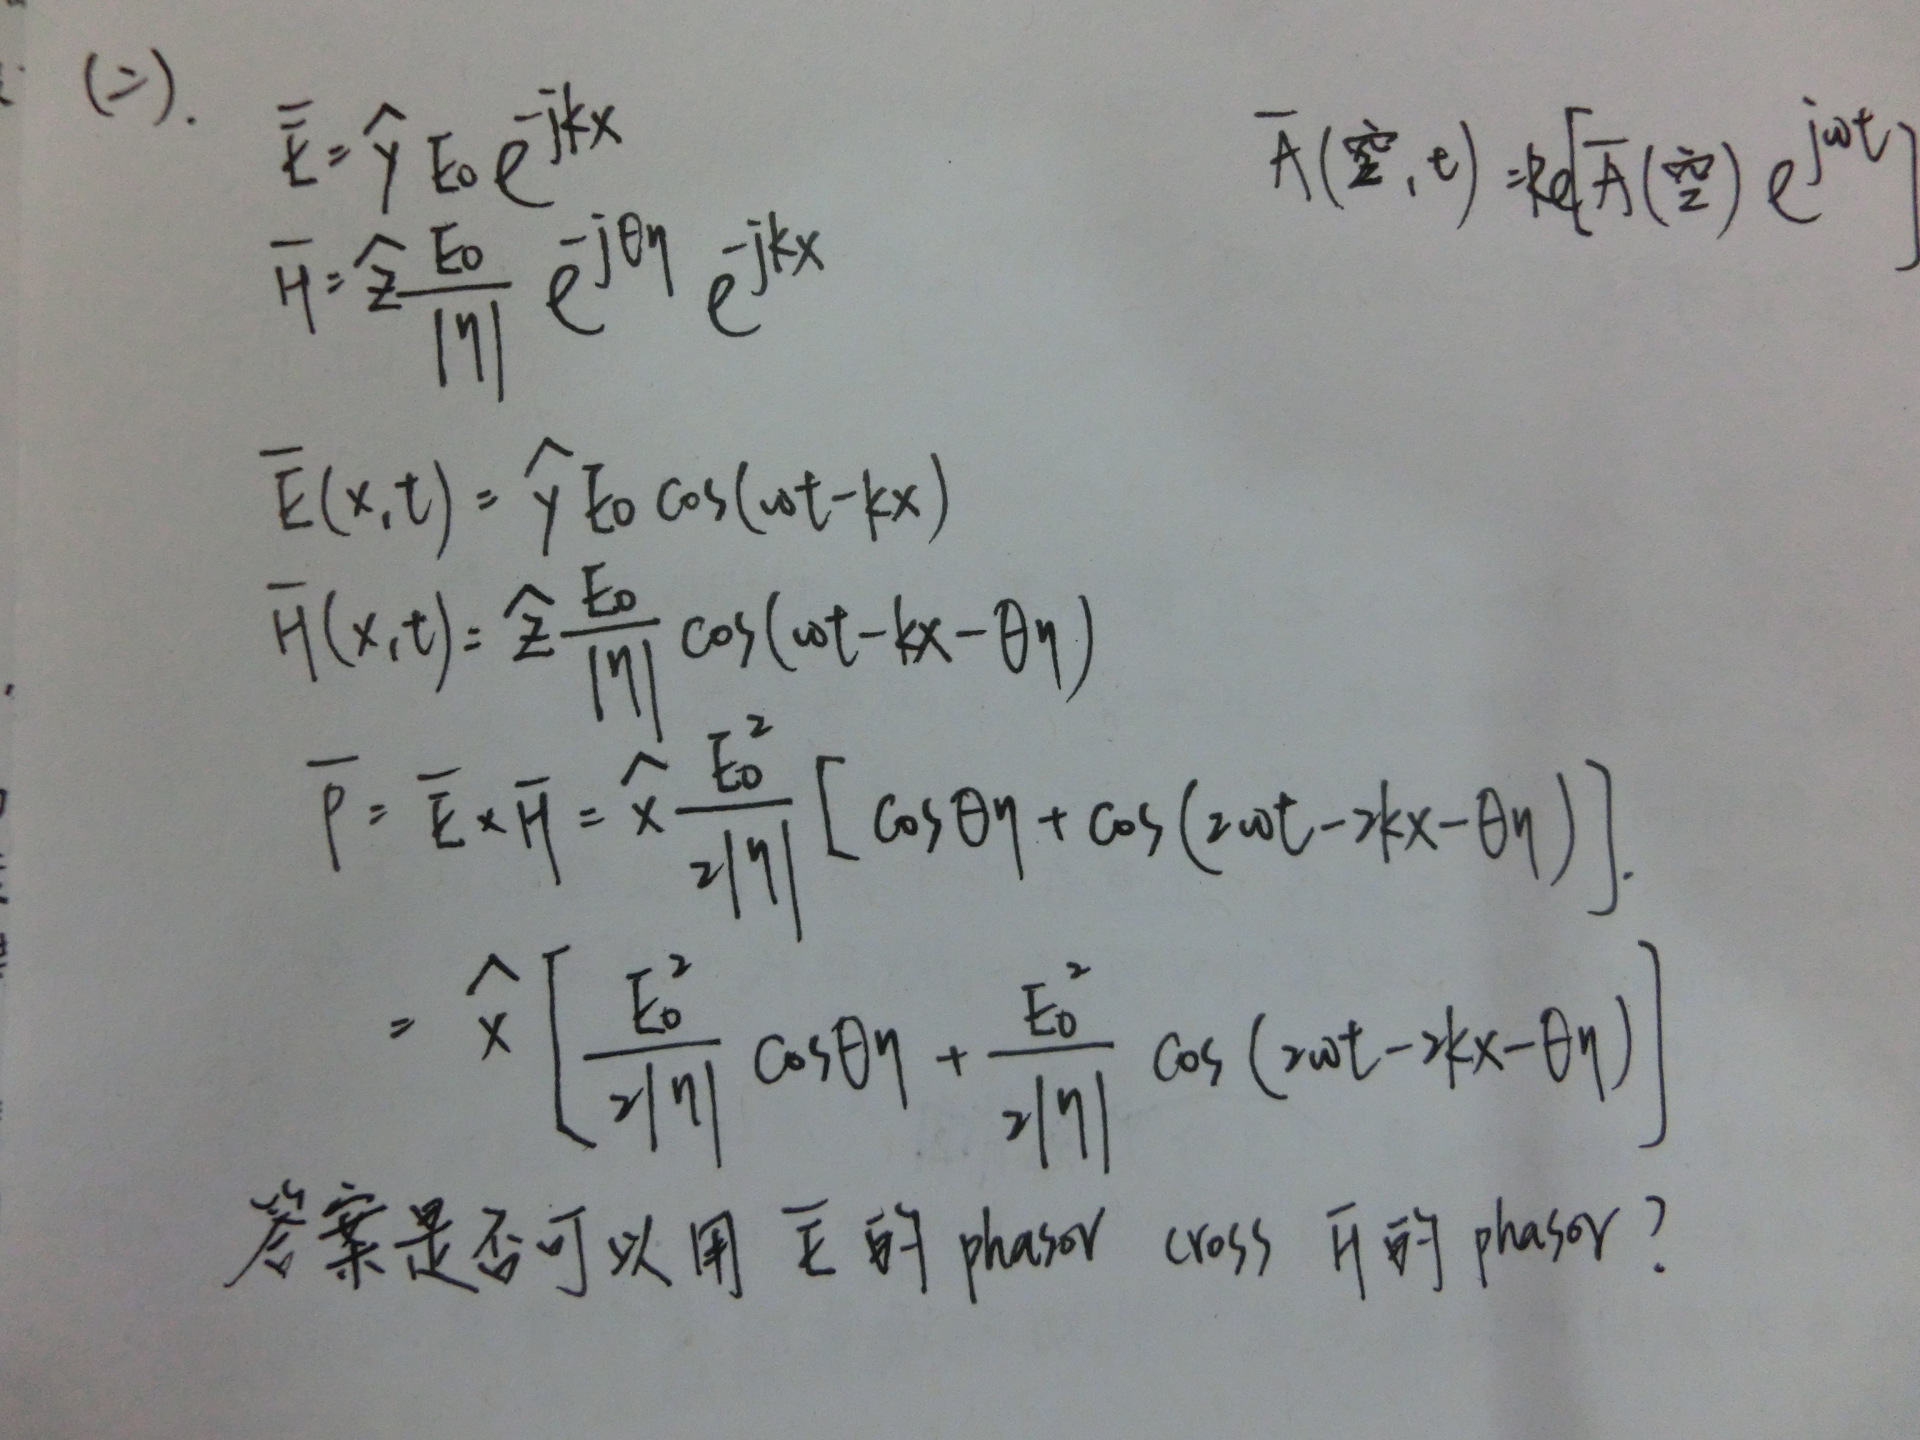 (二).
E̅ = ŷ E₀ e^{-jkx}
A̅(空,t) = Re[A̅(空) e^{jωt}]
H̅ = ẑ E₀/|η| e^{-jθη} e^{-jkx}
E̅(x,t) = ŷ E₀ cos(ωt-kx)
H̅(x,t) = ẑ E₀/|η| cos(ωt-kx-θη)
P̅ = E̅ × H̅ = x̂ E₀²/2|η| [cosθη + cos(2ωt-2kx-θη)].
= x̂ [E₀²/2|η| cosθη + E₀²/2|η| cos(2ωt-2kx-θη)]
答案是否可以用 E̅ 的 phasor cross H̅ 的 phasor?